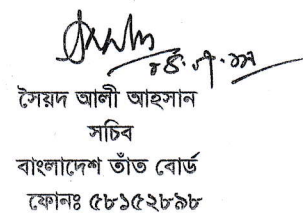 সৈয়দ আলী আহসান
সচিব
বাংলাদেশ তাঁত বোর্ড
ফোনঃ ৫৮১৫২৮৯৮